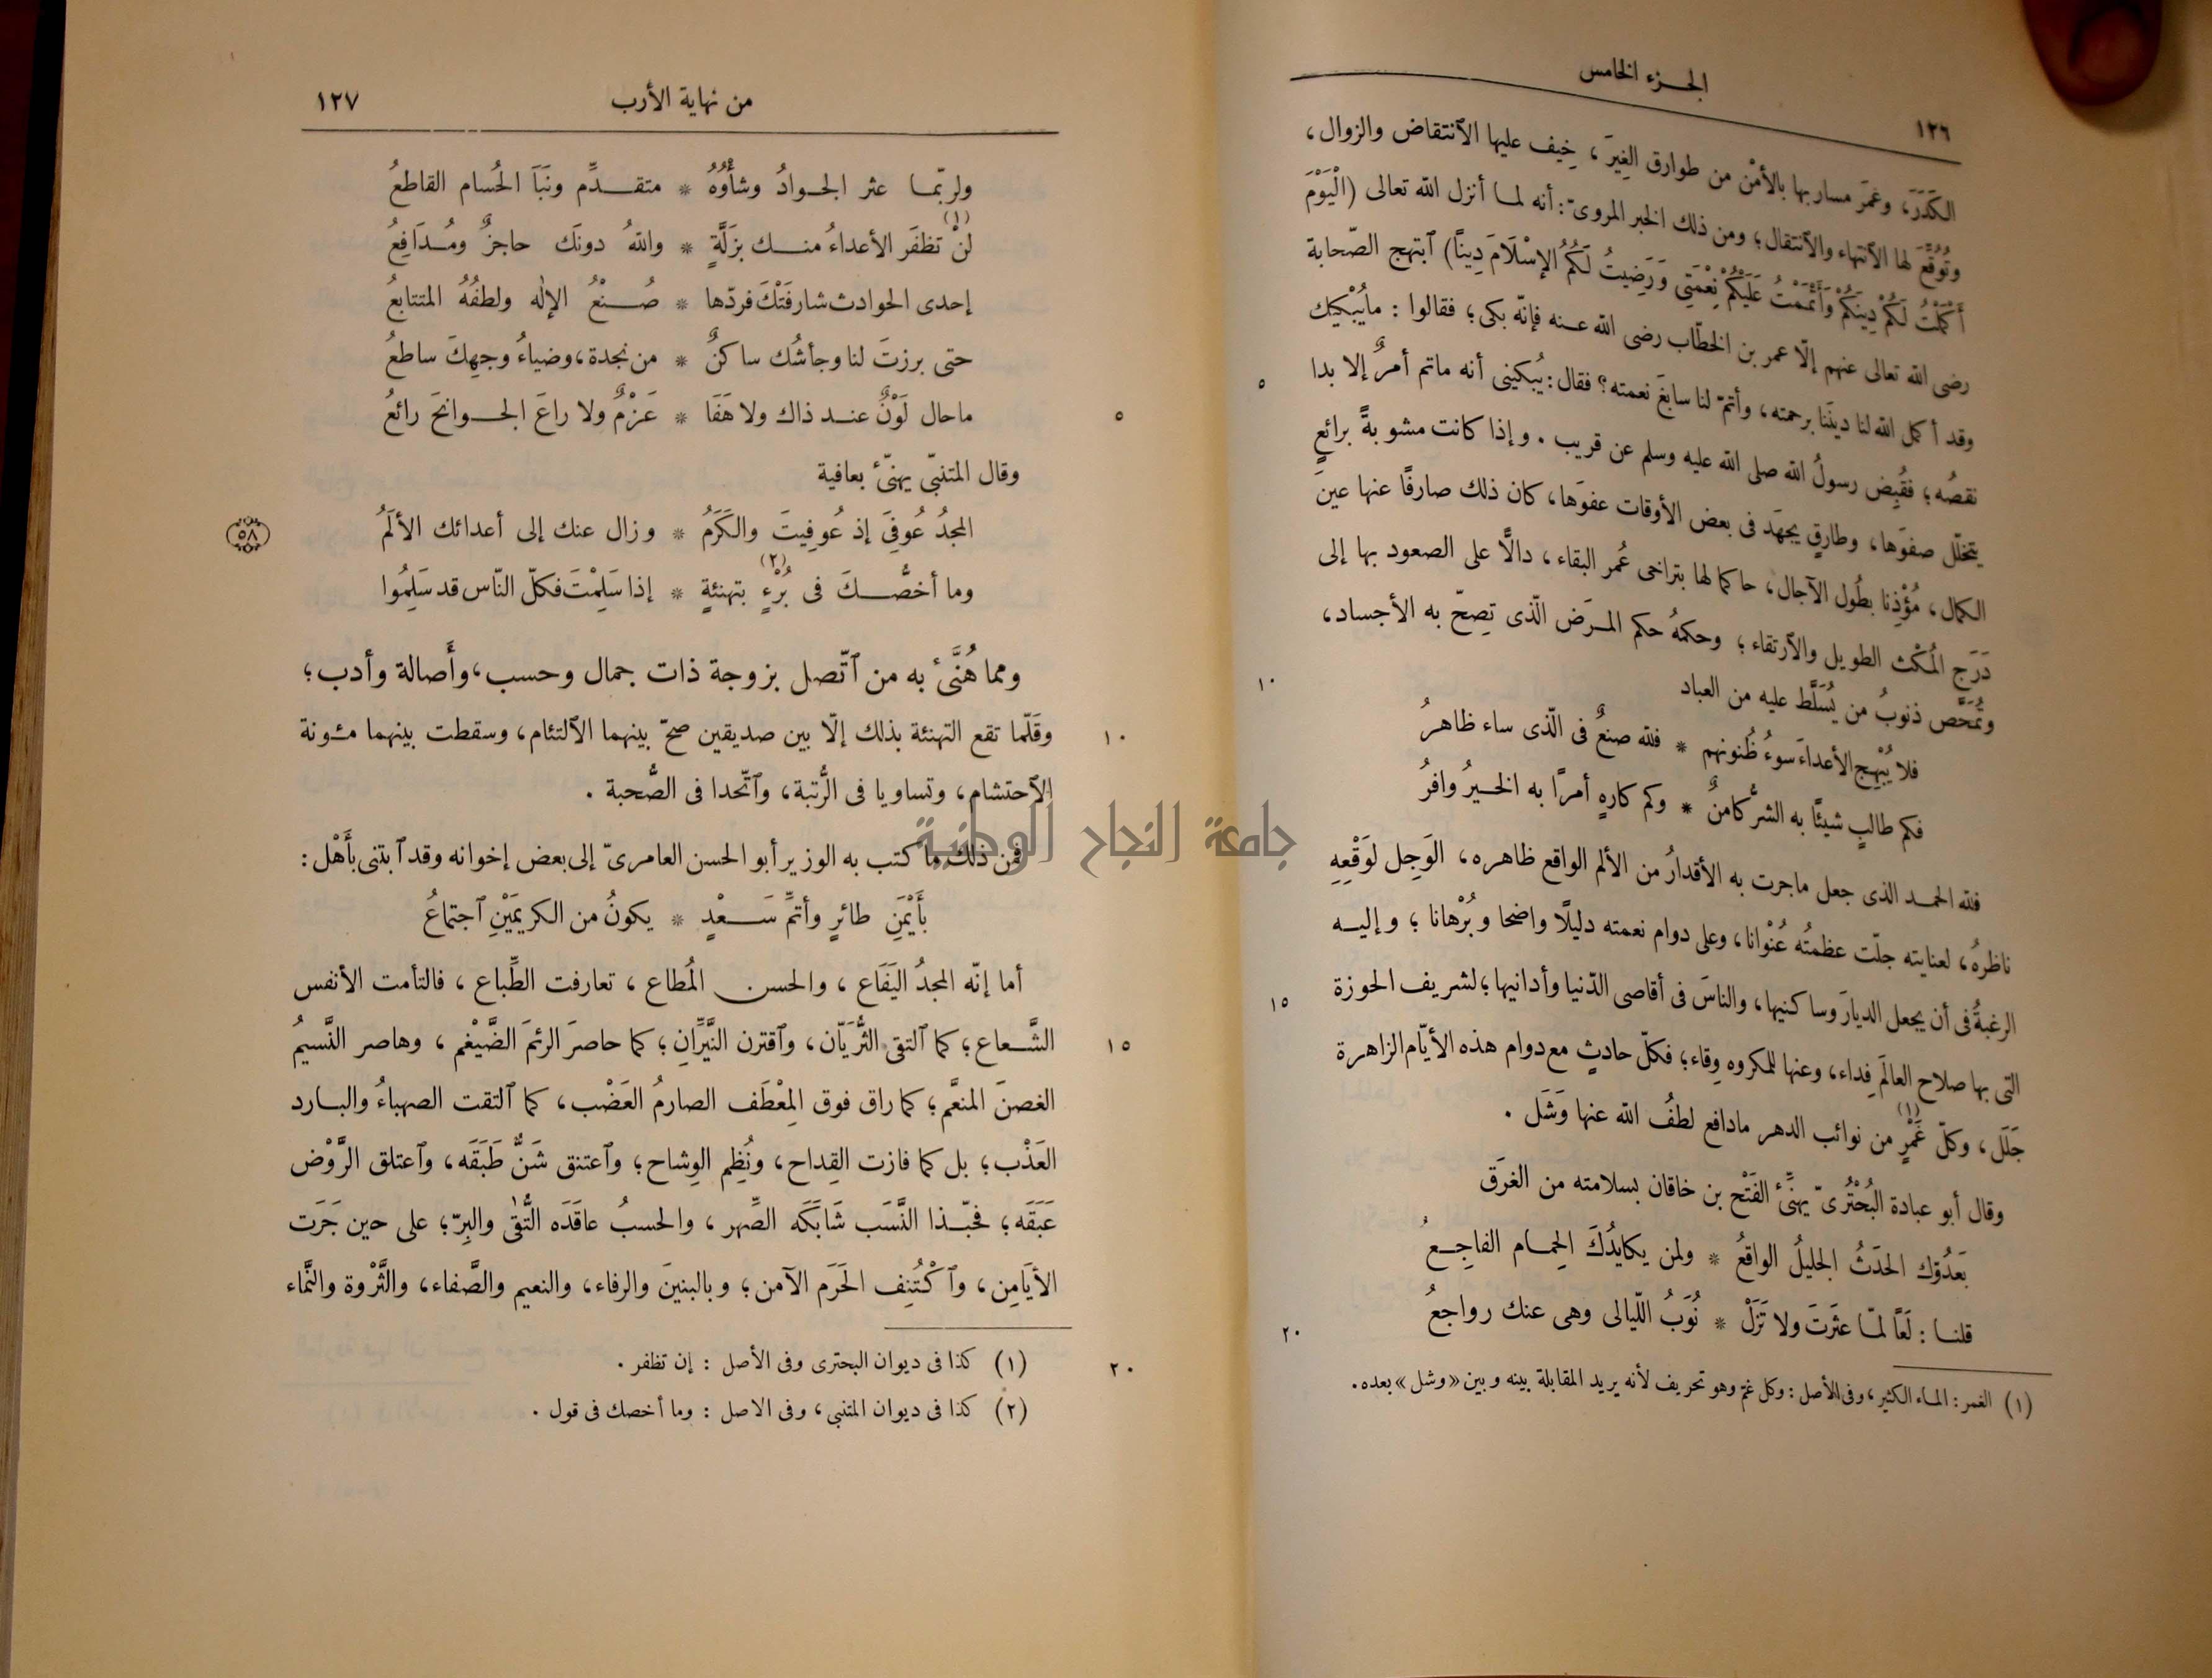 ١٢٦
الجـزء الخامس
الكَدَرَ، وغمَر مساربها بالأمْن من طوارق الغِيَر، خِيف عليها الآنتقاض والزوال،
وتُوُقِّعَ لها الآنتهاء والآنتقال؛ ومن ذلك الخبر المروىّ: أنه لمـا أنزل الله تعالى (الْيَوْمَ
أَكْمَلْتُ لَكُمْ دِينَكُمْ وَأَتْمَمْتُ عَلَيْكُمْ نِعْمَتِى وَرَضِيتُ لَكُمُ الإِسْلَامَ دِينًا) ٱبتهج الصّحابة
رضى الله تعالى عنهم إلّا عمر بن الخطّاب رضى الله عـنه فإنّه بكى؛ فقالوا: مايُبْكيك
وقد أكمل الله لنا دينَنا برحمته، وأتمّ لنا سابغَ نعمته؟ فقال: يُبكينى أنه ماتم أمرٌ إلا بدا
٥
نقصُه؛ فقُبِض رسولُ الله صلى الله عليه وسلم عن قريب. وإذا كانت مشوبةً برائعٍ
يتخلّل صفوَها، وطارقٍ يجهَد فى بعض الأوقات عفوَها، كان ذلك صارفًا عنها عينَ
الكمال، مُؤْذِنا بطُول الآجال، حاكما لها بتراخى عُمر البقاء، دالًّا على الصعود بها إلى
دَرَج المُكْث الطويل والآرتقاء؛ وحكمهُ حكم المـرَض الّذى تِصحّ به الأجساد،
وتُمَحَّص ذنوبُ من يُسَلَّط عليه من العباد
١٠
فلا يُبْهِج الأعداءَ سوءُ ظُنونهم * فلله صنعٌ فى الّذى ساء ظاهرُ
فكم طالبٍ شيئًا به الشرُّ كامنٌ * وكم كارهٍ أمرًا به الخـيرُ وافرُ
فلله الحمـد الذى جعل ماجرت به الأقدارُ من الألم الواقع ظاهره، الوَجِل لوَقْعِهِ
ناظرهُ، لعنايته جلّت عظمتُه عُنْوانا، وعلى دوام نعمته دليلًا واضحا وبُرْهانا؛ وإليـه
الرغبةُ فى أن يجعل الديارَ وساكنيها، والناسَ فى أقاصى الدّنيا وأدانيها؛ لشريف الحوزة
١٥
التى بها صلاح العالَم فِداء، وعنها للمكروه وِقاء؛ فكلّ حادثٍ مع دوام هذه الأيّام الزاهرة
جَلَل، وكلّ غَمْرٍ (١) من نوائب الدهر مادافع لطفُ الله عنها وَشَل.
وقال أبو عبادة البُحْتُرىّ يهنِّئ الفَتْح بن خاقان بسلامته من الغرَق
بَعَدُوّك الحدَثُ الجليلُ الواقعُ * ولمن يكايدُكَ الحِمـام الفاجـعُ
قلنـا: لَعًا لمـّا عثَرتَ ولا تَزَلْ * نُوَبُ اللّيالى وهى عنك رواجعُ
٢٠
(١) الغمر: المـاء الكثير، وفى الأصل: وكل غمّ وهو تحريف لأنه يريد المقابلة بينه وبين «وشل» بعده.
من نهاية الأرب
١٢٧
ولربّمـا عثر الجـوادُ وشأوُهُ * متقـدِّم ونبَا الحُسام القاطعُ
لن (١) تظفَر الأعداءُ منـك بزَلَّةٍ * واللهُ دونَك حاجزٌ ومُـدَافِعُ
إحدى الحوادث شارفَتْكَ فردّها * صُـنْعُ الإلٰه ولطفُهُ المتتابعُ
حتى برزتَ لنا وجأشُك ساكنٌ * من نجدة، وضياءُ وجهِكَ ساطعُ
ماحال لَوْنٌ عنـد ذاك ولا هَفَا * عَزْمٌ ولا راعَ الجـوانحَ رائعُ
٥
وقال المتنبّى يهنّئ بعافية
المجدُ عُوفِىَ إذ عُوفِيتَ والكَرَمُ * وزال عنك إلى أعدائك الألَمُ
٥٨
وما أخصُّـكَ فى بُرْءٍ (٢) بتهنئةٍ * إذا سَلِمْتَ فكلّ النّاس قد سَلِمُوا
ومما هُنَّئ به من ٱتّصل بزوجة ذات جمال وحسب، وأَصالة وأدب؛
وقَلّما تقع التهنئة بذلك إلّا بين صديقين صحّ بينهما الآلتئام، وسقطت بينهما مئونة
١٠
الآحتشام، وتساويا فى الرُّتبة، وٱتّحدا فى الصُّحبة.
فمن ذلك ما كتب به الوزير أبو الحسن العامرىّ إلى بعض إخوانه وقد ٱبتنى بأَهْل:
بأَيْمَنِ طائرٍ وأتمِّ سَـعْدٍ * يكونُ من الكريمَيْنِ ٱجتماعُ
أما إنّه المجدُ اليَفَاع، والحسن المُطاع، تعارفت الطِّباع، فالتأمت الأنفس
الشَّعاع؛ كما ٱلتقى الثُّرَيّان، وٱقترن النَّيِّرانِ؛ كما حاصرَ الرئمَ الضَّيْغم، وهاصر النَّسيمُ
١٥
الغصنَ المنعَّم؛ كما راق فوق المِعْطَف الصارمُ العَضْب، كما ٱلتقت الصهباءُ والبـارد
العَذْب؛ بل كما فازت القِداح، ونُظِم الوِشاح؛ وٱعتنق شَنٌّ طَبَقَه، وٱعتلق الرَّوْض
عَبَقَه؛ فحبّـذا النَّسَب شَابَكَه الصِّهر، والحسبُ عاقَدَه التُّقٰى والبِرّ؛ على حين جَرَت
الأَيَامِن، وٱكْتُنِف الحَرَم الآمن؛ وبالبنينَ والرفاء، والنعيم والصَّفاء، والثَّرْوة والنَّماء
(١) كذا فى ديوان البحترى وفى الأصل: إن تظفر.
٢٠
(٢) كذا فى ديوان المتنبى، وفى الاصل: وما أخصك فى قول.
جامعة النجاح الوطنية